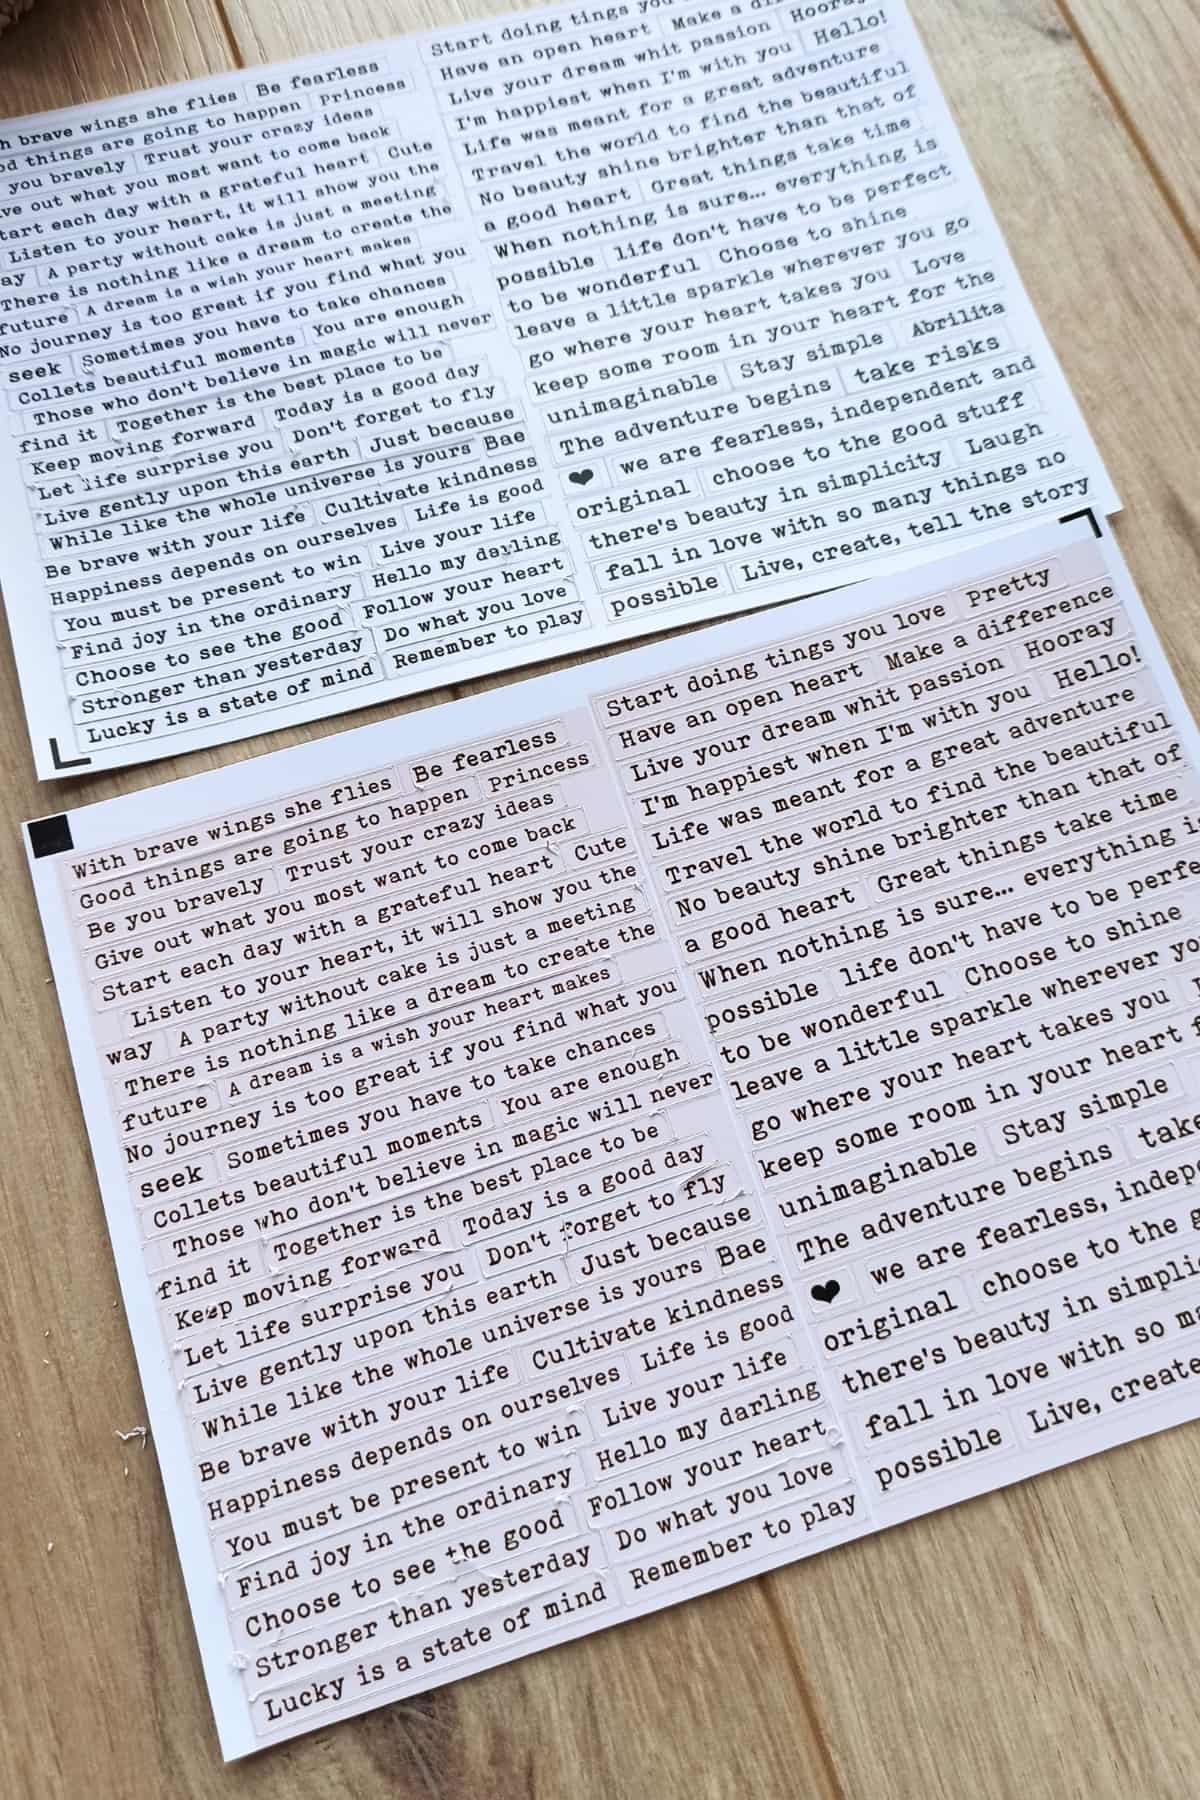 brave wings she flies Be fearless
things are going to happen Princess
you bravely Trust your crazy ideas
out what you most want to come back
each day with a grateful heart Cute
Listen to your heart, it will show you the
A party without cake is just a meeting
There is nothing like a dream to create the
future A dream is a wish your heart makes
No journey is too great if you find what you
seek Sometimes you have to take chances
Collets beautiful moments You are enough
Those who don't believe in magic will never
find it Together is the best place to be
Keep moving forward Today is a good day
Let life surprise you Don't forget to fly
Live gently upon this earth Just because
While like the whole universe is yours Bae
Be brave with your life Cultivate kindness
Happiness depends on ourselves Life is good
You must be present to win Live your life
Find joy in the ordinary Hello my darling
Choose to see the good Follow your heart
Stronger than yesterday Do what you love
Lucky is a state of mind Remember to play
Start doing tings
Have an open heart Make a
Live your dream whit passion
I'm happiest when I'm with you Hello!
Life was meant for a great adventure
Travel the world to find the beautiful
No beauty shine brighter than that of
a good heart Great things take time
When nothing is sure... everything is
possible life don't have to be perfect
to be wonderful Choose to shine
leave a little sparkle wherever you go
go where your heart takes you Love
keep some room in your heart for the
unimaginable Stay simple Abrilita
The adventure begins take risks
❤ we are fearless, independent and
original choose to the good stuff
there's beauty in simplicity Laugh
fall in love with so many things no
possible Live, create, tell the story
With brave wings she flies Be fearless
Good things are going to happen Princess
Be you bravely Trust your crazy ideas
Give out what you most want to come back
Start each day with a grateful heart Cute
Listen to your heart, it will show you the
way A party without cake is just a meeting
There is nothing like a dream to create the
future A dream is a wish your heart makes
No journey is too great if you find what you
seek Sometimes you have to take chances
Collets beautiful moments You are enough
Those who don't believe in magic will never
find it Together is the best place to be
Keep moving forward Today is a good day
Let life surprise you Don't forget to fly
Live gently upon this earth Just because
While like the whole universe is yours Bae
Be brave with your life Cultivate kindness
Happiness depends on ourselves Life is good
You must be present to win Live your life
Find joy in the ordinary Hello my darling
Choose to see the good Follow your heart
Stronger than yesterday Do what you love
Lucky is a state of mind Remember to play
Start doing tings you love Pretty
Have an open heart Make a difference
Live your dream whit passion Hooray
I'm happiest when I'm with you Hello!
Life was meant for a great adventure
Travel the world to find the beautiful
No beauty shine brighter than that of
a good heart Great things take time
When nothing is sure... everything
possible life don't have to be
to be wonderful Choose to shine
leave a little sparkle wherever
go where your heart takes you
keep some room in your heart
unimaginable Stay simple
The adventure begins take
❤ we are fearless,
original choose to the
there's beauty in
fall in love with so
possible Live, create